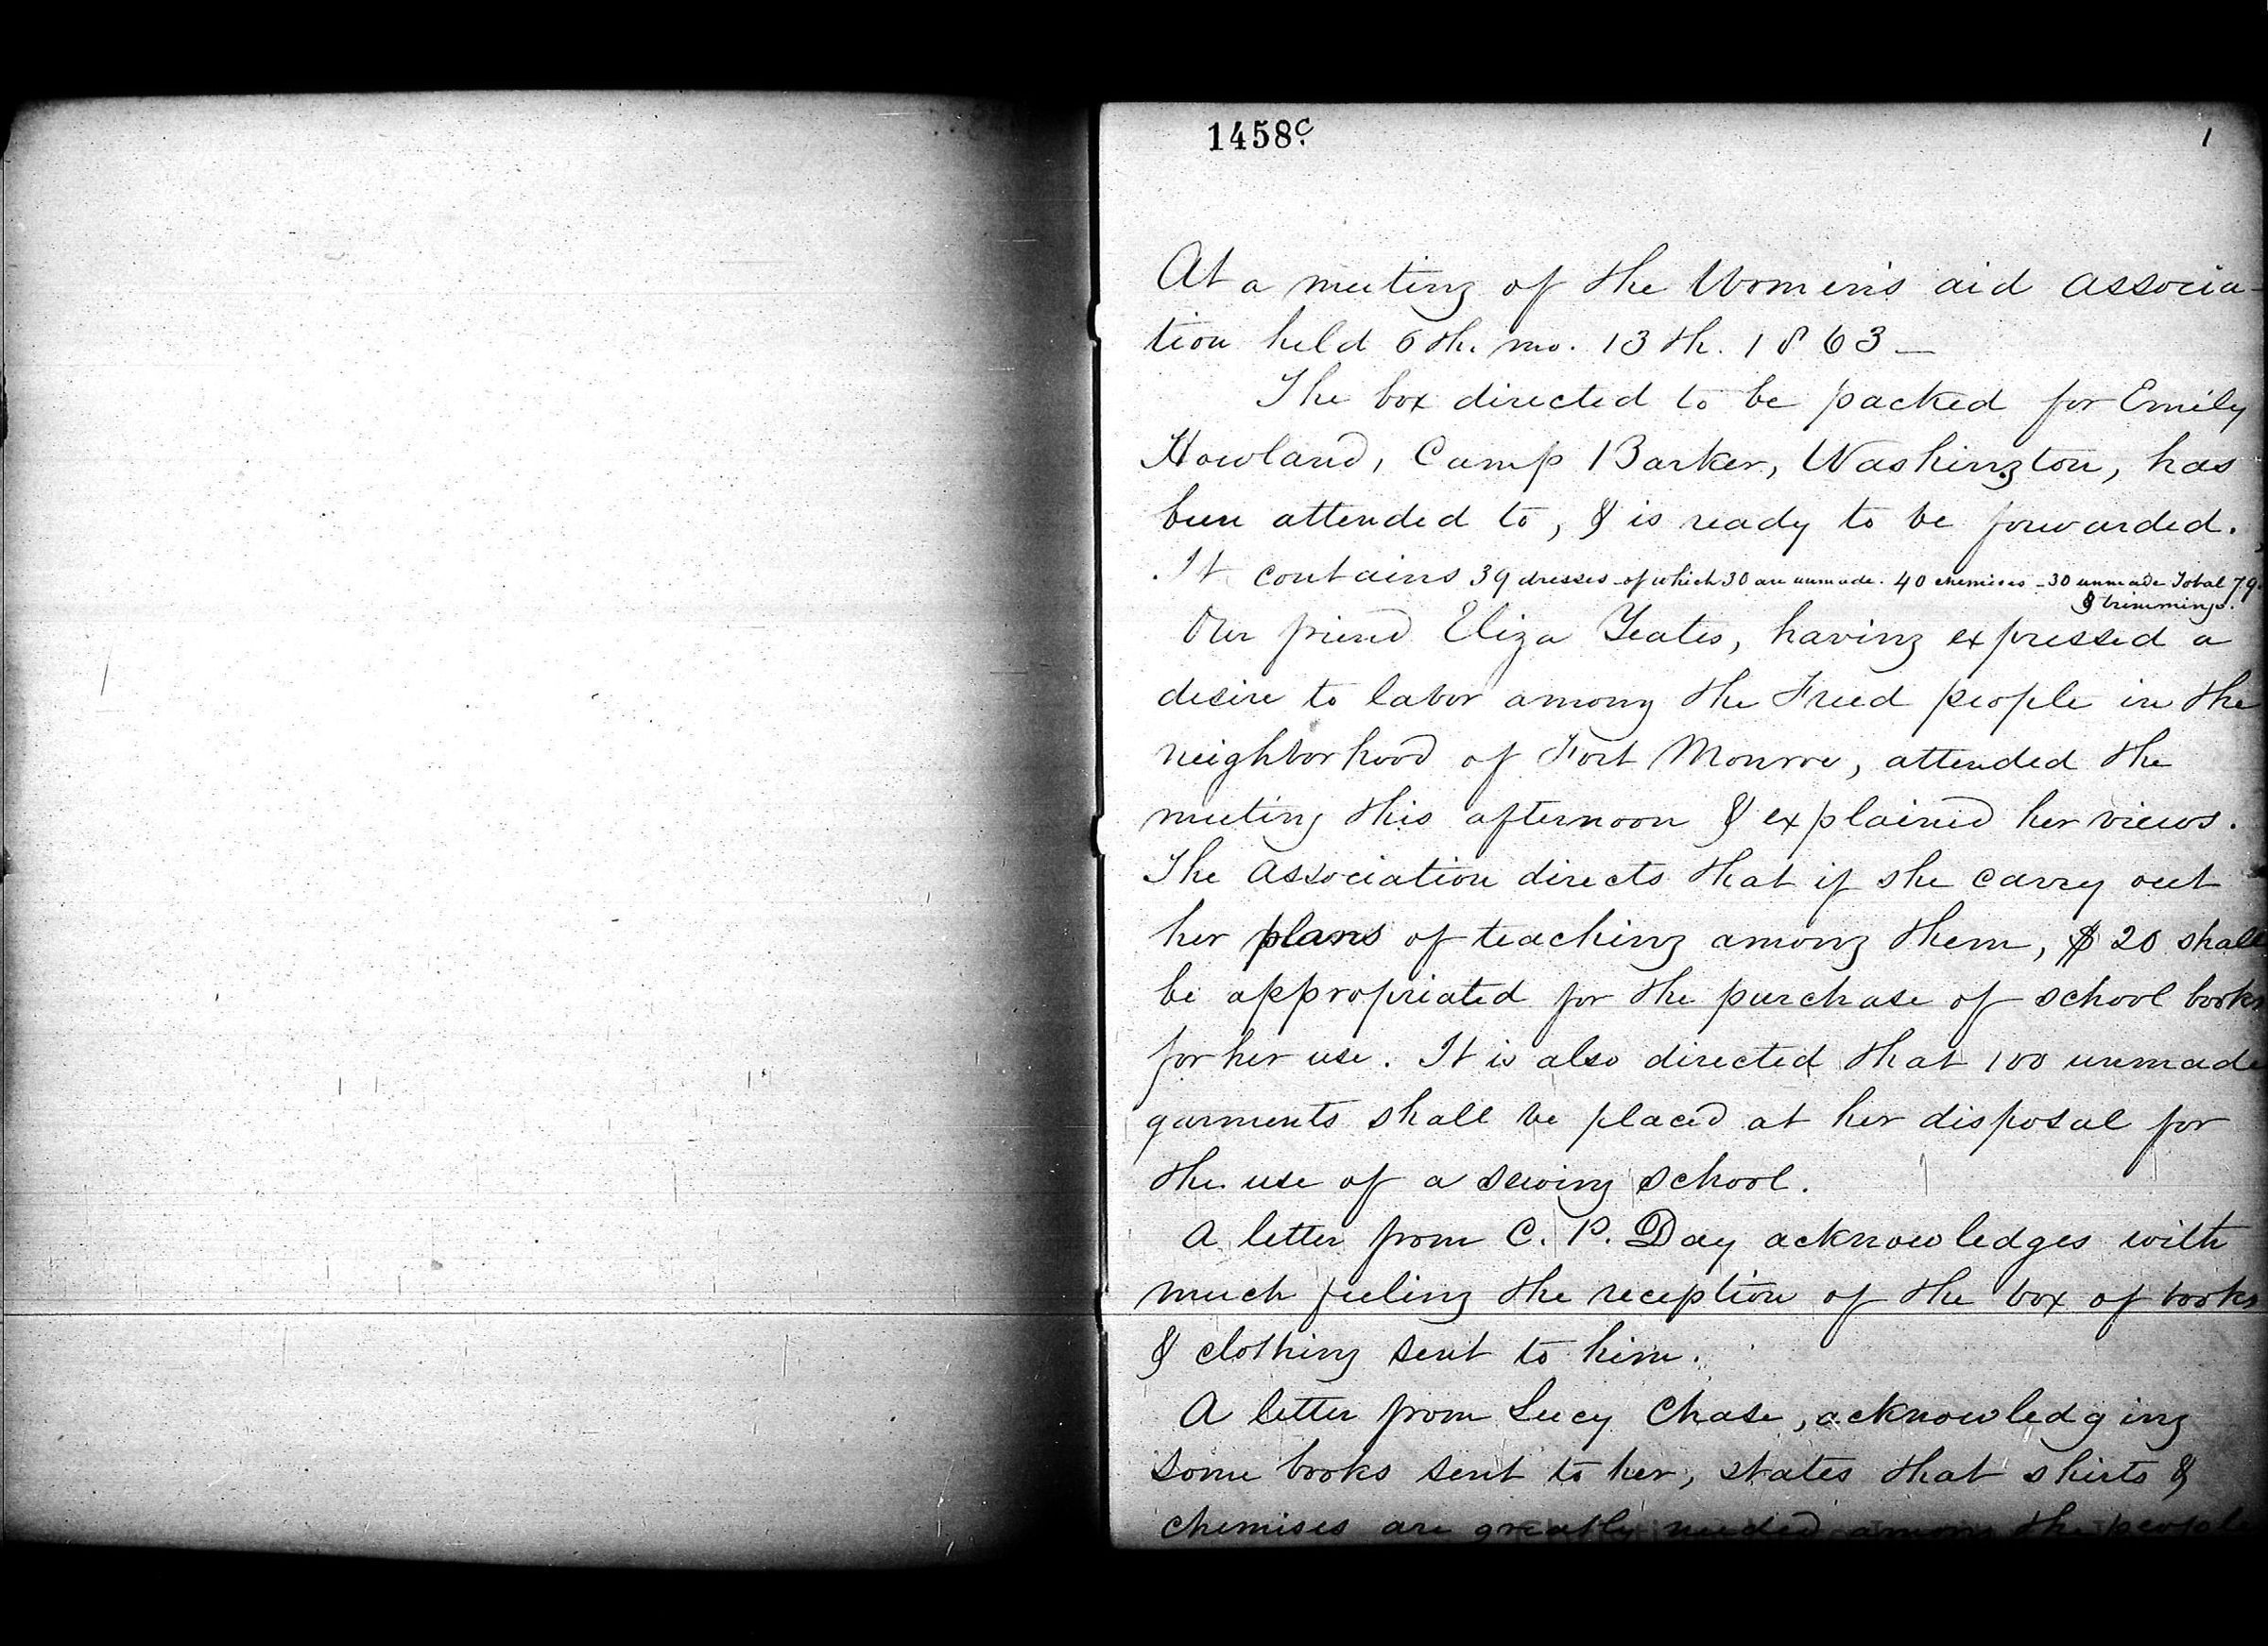 1458c.
1
At a meeting of the Women's aid Associa-
tion held 6th. mo. 13th. 1863 —
The box directed to be packed for Emily
Howland, Camp Barker, Washington, has
been attended to, & is ready to be forwarded.
It contains 39 dresses of which 30 are unmade. 40 chemises - 30 unmade Total 79.
& trimmings.
Our friend Eliza Yeates, having expressed a
desire to labor among the Freed people in the
neighborhood of Fort Monroe, attended the
meeting this afternoon & explained her views.
The Association directs that if she carry out
her plans of teaching among them, $20 shall
be appropriated for the purchase of school books
for her use. It is also directed that 100 unmade
garments shall be placed at her disposal for
the use of a sewing school.
A letter from C. P. Day acknowledges with
much feeling the reception of the box of books
& clothing sent to him.
A letter from Lucy Chase, acknowledging
some books sent to her, states that shirts &
chemises are greatly needed among the people